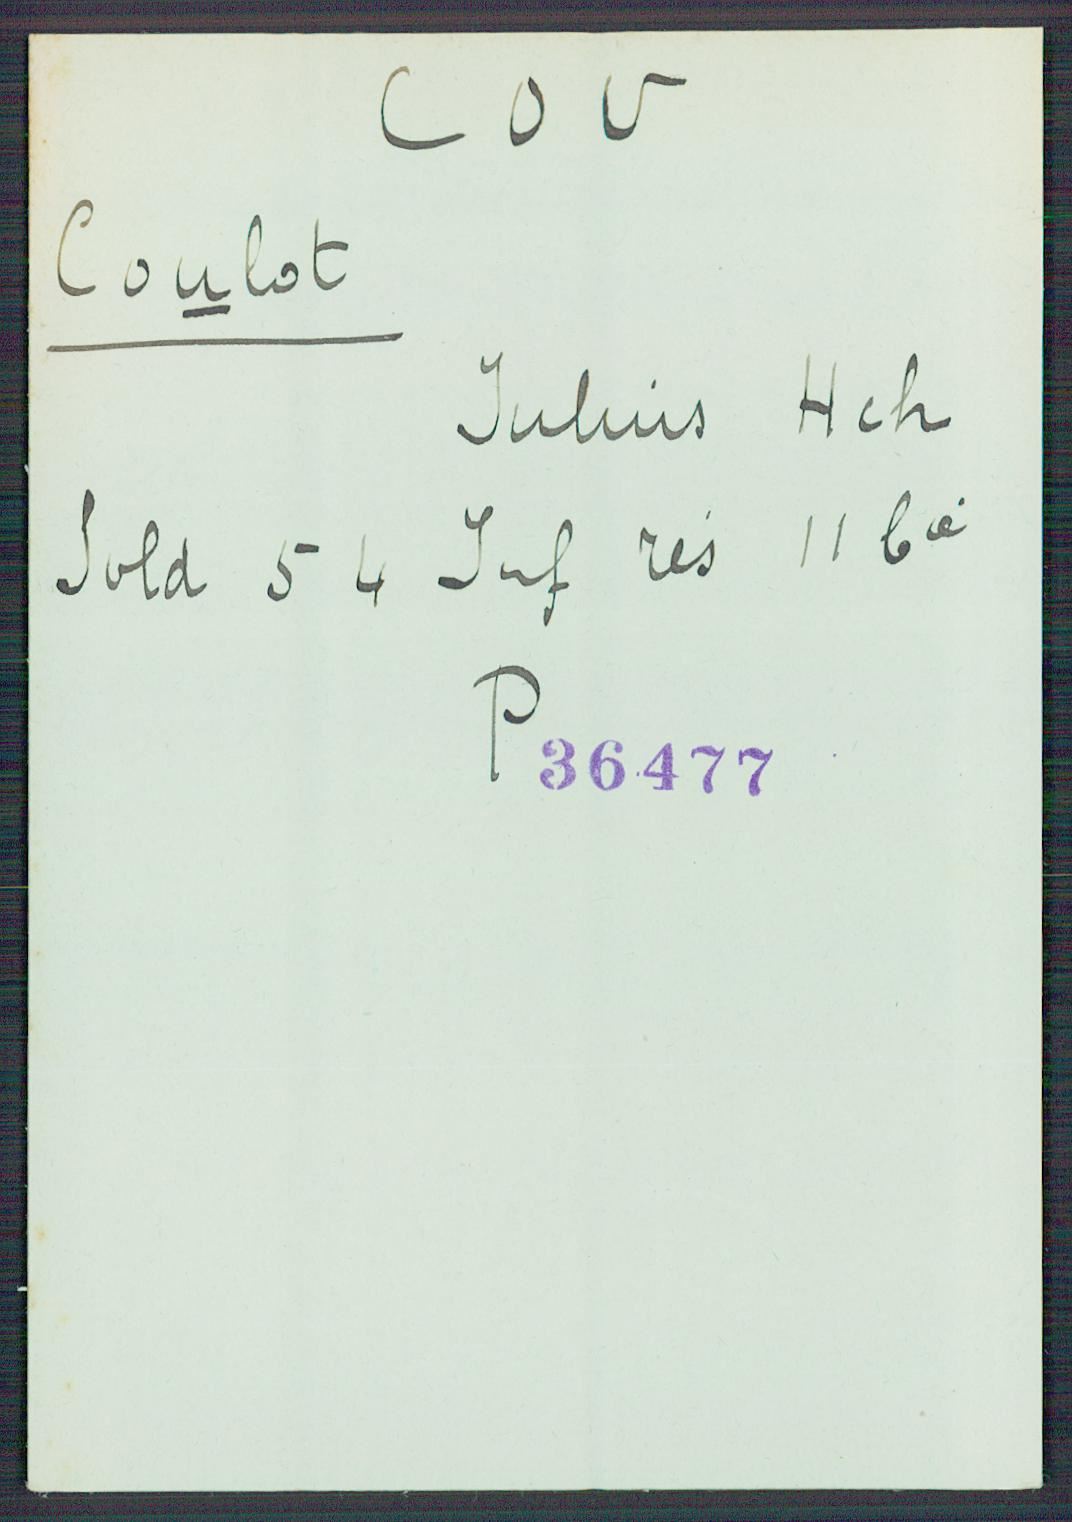 C O U
Coulot
Julius Hch
Sold 54 Inf rés 11 Cie
P 36477